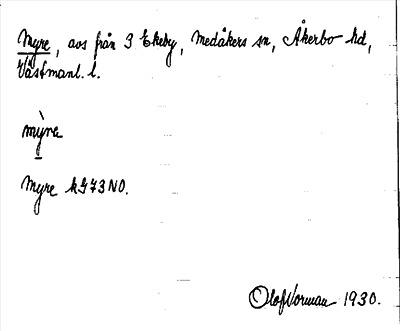 Myre, avs från 3 Ekeby, Medåkers sn, Åkerbo hd,
Västmanl. l.
mỳrε
Myre kG73NO.
Olof Norman 1930.